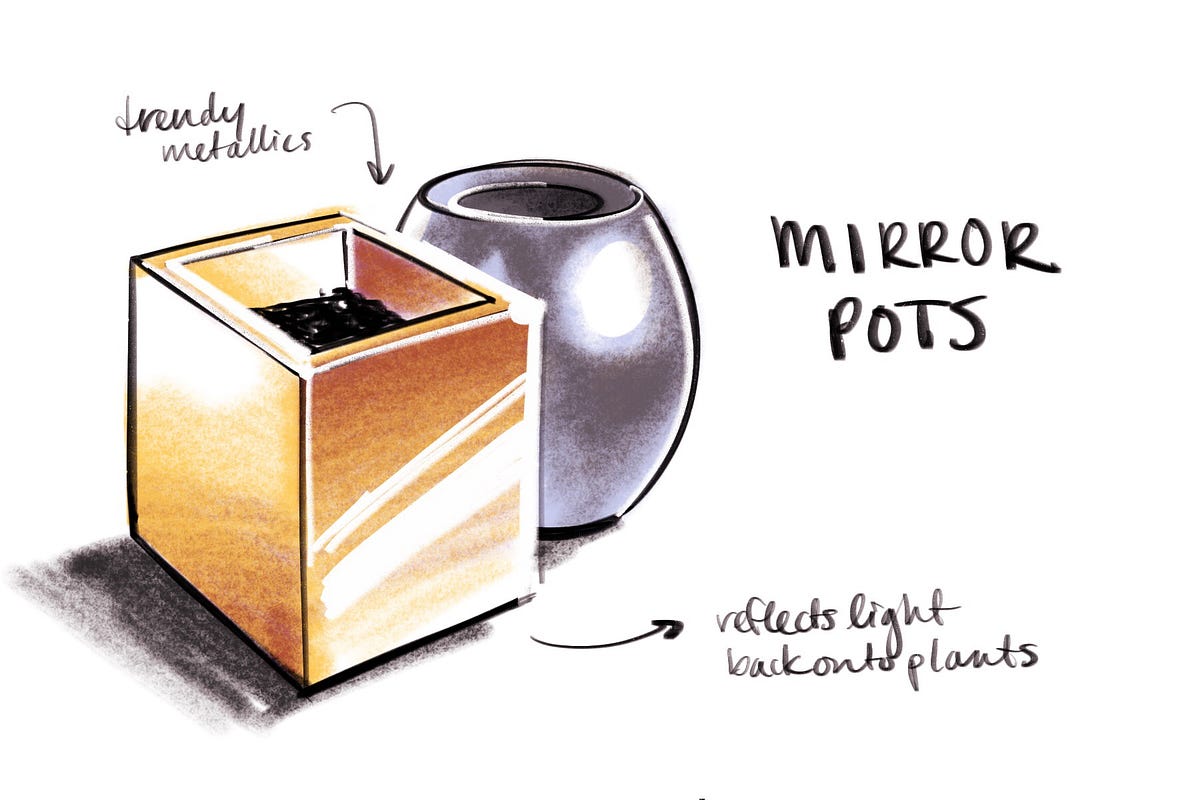 trendy
metallics
MIRROR
POTS
reflects light
back onto plants